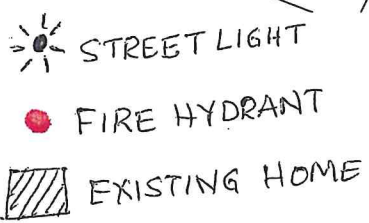 STREET LIGHT
FIRE HYDRANT
EXISTING HOME